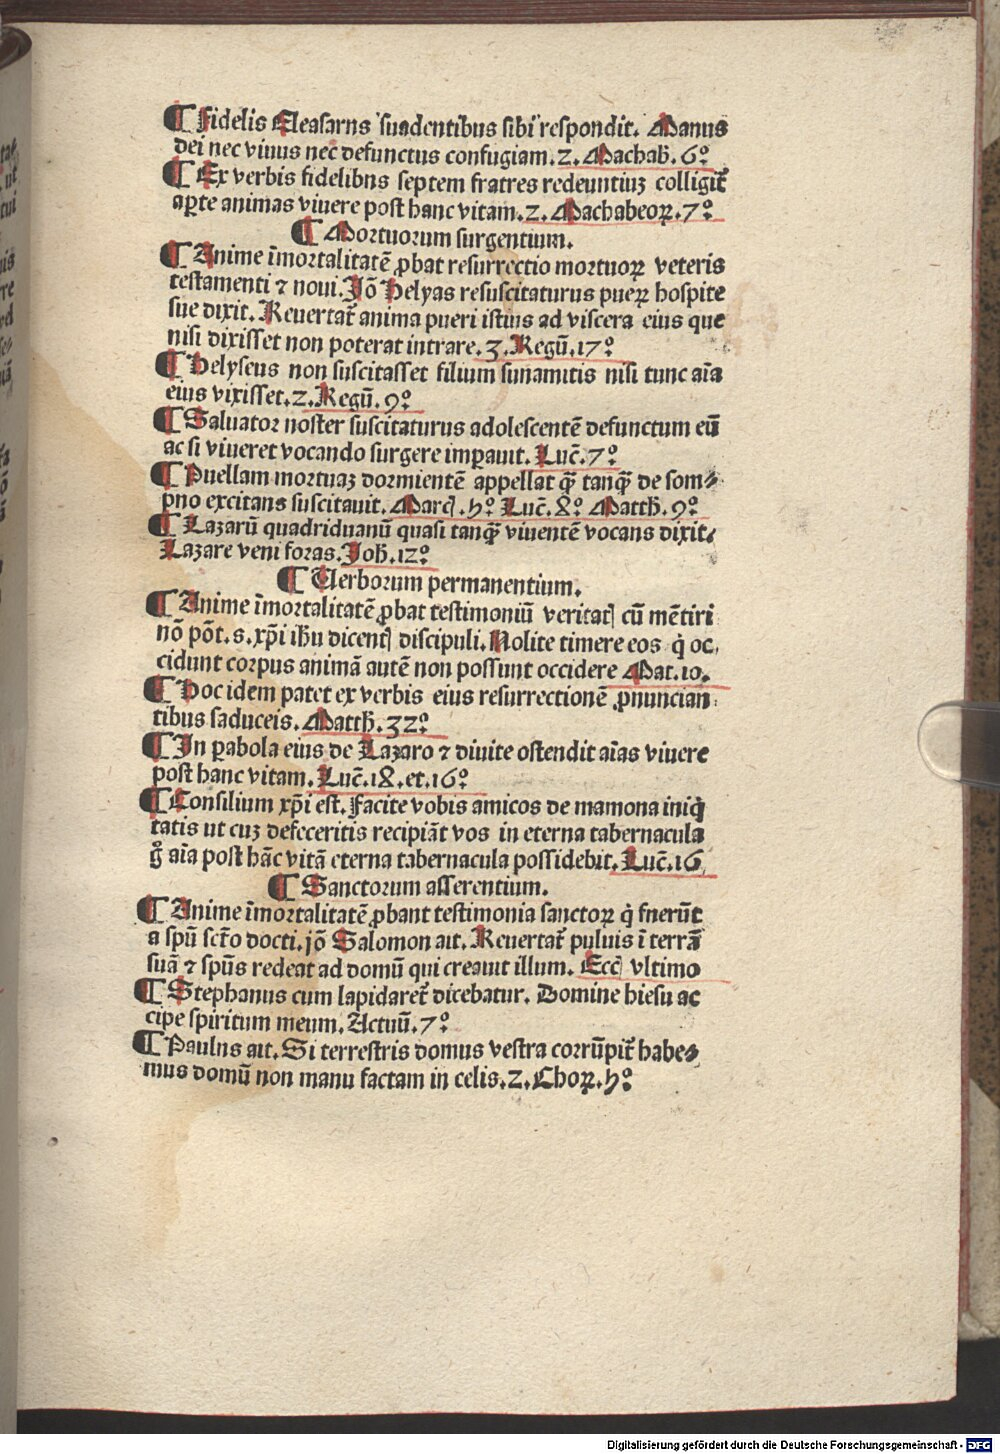 ¶ Fidelis Eleasarns suadentibus sibi respondit. Manus
dei nec viuus nec defunctus confugiam. 2. Machab̄. 6º
¶ Ex verbis fidelibns septem fratres redeuntiuꝫ colligit᷑
aꝑte animas viuere post hanc vitam. 2. Machabeoꝝ. 7º
¶ Mortuorum surgentium.
¶ Anime īmortalitatē ꝓbat resurrectio mortuoꝝ veteris
testamenti ⁊ noui. Jō Helyas resuscitaturus pueꝝ hospite
sue dixit. Reuertat᷑ anima pueri istius ad viscera eius que
nisi dixisset non poterat intrare. 3. Regū. 17º
¶ Helyseus non suscitasset filium sunamitis nisi tunc aīa
eius vixisset. 2. Regū. 9º
¶ Saluator noster suscitaturus adolescentē defunctum eū
ac si viueret vocando surgere imꝑauit. Luc̄. 7º
¶ Puellam mortuaꝫ dormientē appellat q̄ tanq̄ de som⸗
pno excitans suscitauit. Marcꝭ. 5º Luc̄. 8º Matth̄. 9º
¶ Lazarū quadriduanū quasi tanq̄ viuentē vocans dixit.
Lazare veni foras. Joh̄. 12º
¶ Verborum permanentium.
¶ Anime īmortalitatē ꝓbat testimoniū veritatꝭ cū mētiri
nō pōt. s. xp̄i ih̄u dicentꝭ discipuli. Nolite timere eos q̇ oc⸗
cidunt corpus animā autē non possunt occidere Mat. 10.
¶ Hoc idem patet ex verbis eius resurrectionē ꝓnuncian⸗
tibus saduceis. Matth̄. 32º
¶ In ꝑabola eius de Lazaro ⁊ diuite ostendit aīas viuere
post hanc vitam. Luc̄. 18. et. 16º
¶ Consilium xp̄i est. Facite vobis amicos de mamona iniq̇
tatis ut cuꝫ defeceritis recipiāt vos in eterna tabernacula
g̊ aīa post hāc vitā eterna tabernacula possidebit. Luc̄. 16
¶ Sanctorum asserentium.
¶ Anime īmortalitatē ꝓbant testimonia sanctoꝝ q̇ fnerūt
a spū sct̄o docti. jō Salomon ait. Reuertat᷑ puluis ī terrā
suā ⁊ spūs redeat ad domū qui creauit illum. Eccꝭ vltimo
¶ Stephanus cum lapidaret᷑ dicebatur. Domine hiesu ac
cipe spiritum meum. Actuū. 7º
¶ Paulns ait. Si terrestris domus vestra corrūpit᷑ habe⸗
mus domū non manu factam in celis. 2. Choꝝ. 5º
Digitalisierung gefördert durch die Deutsche Forschungsgemeinschaft - DFG